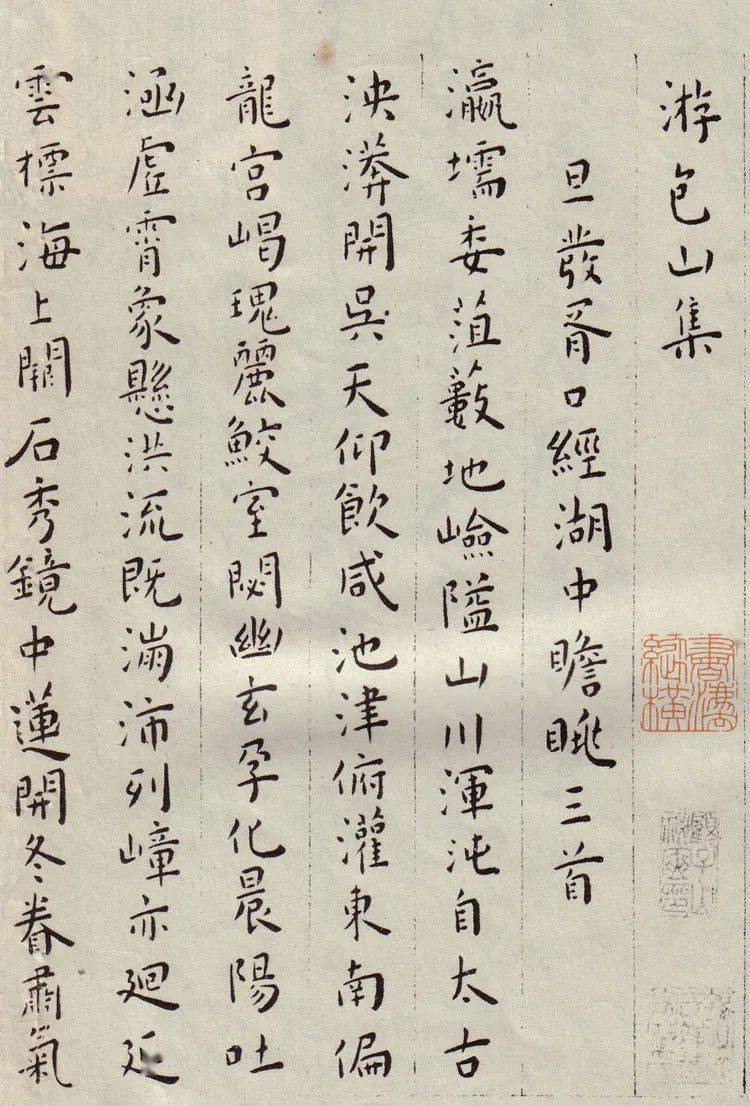 游包山集
旦發胥口經湖中瞻眺三首
瀛壖委菹藪地嶮隘山川渾沌自太古
泱漭開吳天仰歙咸池津俯灌東南偏
龍宮嵑瑰麗鮫室閟幽玄孕化晨陽吐
涵虛霄象懸洪流既滿沛列嶂亦廻延
雲標海上關石秀鏡中蓮開冬眷肅氣